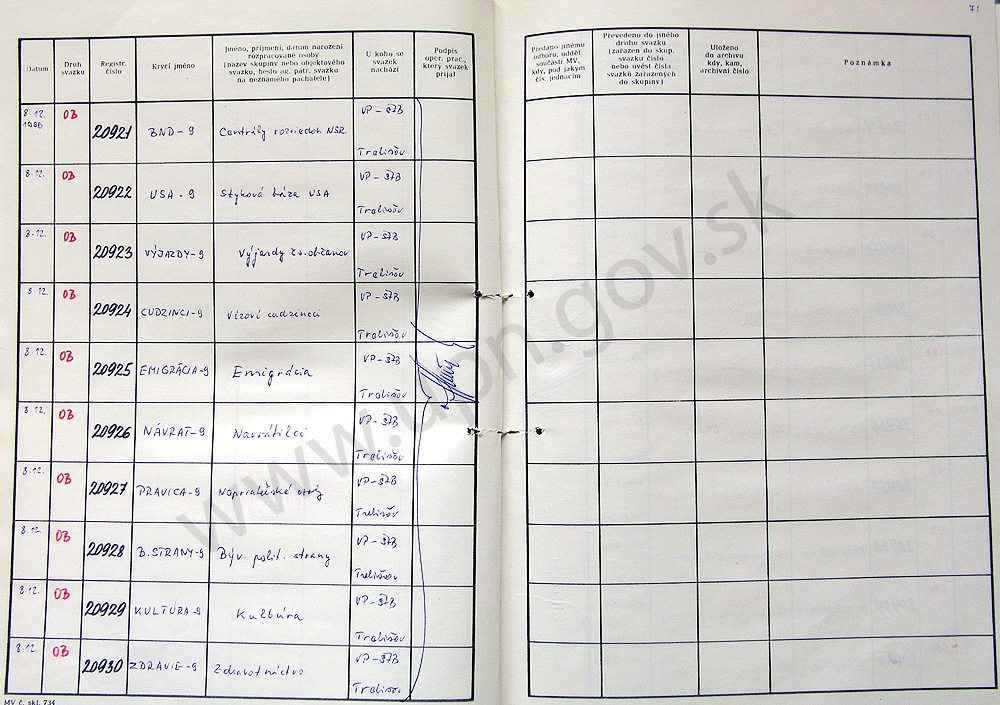 71
Datum
Druh
svazku
Registr.
číslo
Krycí jméno
Jméno, příjmení, datum narození
rozpracované osoby
(název skupiny nebo objektového
svazku, heslo ag. pátr. svazku
na neznámého pachatele)
U koho se
svazek
nachází
Podpis
oper. prac.,
který svazek
přijal
Předáno jinému
odboru, odděl.
součásti MV,
kdy, pod jakým
čís. jednacím
Převedeno do jiného
druhu svazku
(zařazen do skup.
svazku číslo
nebo uvést čísla
svazků zařazených
do skupiny)
Uloženo
do archivu
kdy, kam,
archivní číslo
Poznámka
8.12.
1986
OB
20921
BND-9
Centrály rozviedok NSR
VP-ŠTB
Trebišov
8.12.
OB
20922
USA-9
Styková báza USA
VP-ŠTB
Trebišov
8.12.
OB
20923
VÝJAZDY-9
Výjazdy čs. občanov
VP-ŠTB
Trebišov
8.12.
OB
20924
CUDZINCI-9
Vízoví cudzinci
VP-ŠTB
Trebišov
8.12.
OB
20925
EMIGRÁCIA-9
Emigrácia
VP-ŠTB
Trebišov
8.12.
OB
20926
NÁVRAT-9
Navrátilci
VP-ŠTB
Trebišov
8.12.
OB
20927
PRAVICA-9
Nepriateľské osoby
VP-ŠTB
Trebišov
8.12.
OB
20928
B.STRANY-9
Býv. polit. strany
VP-ŠTB
Trebišov
8.12.
OB
20929
KULTÚRA-9
Kultúra
VP-ŠTB
Trebišov
8.12.
OB
20930
ZDRAVIE-9
Zdravotníctvo
VP-ŠTB
Trebišov
MV č. skl. 734
www.upn.gov.sk